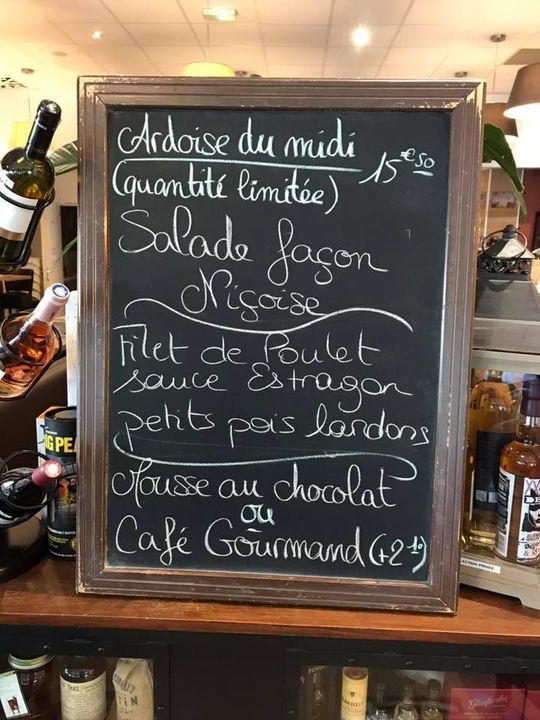 Ardoise du midi
15€50
(quantité limitée)
Salade façon
Niçoise
Filet de Poulet
sauce Estragon
petits pois lardons
Mousse au chocolat
ou
Café Gourmand (+2